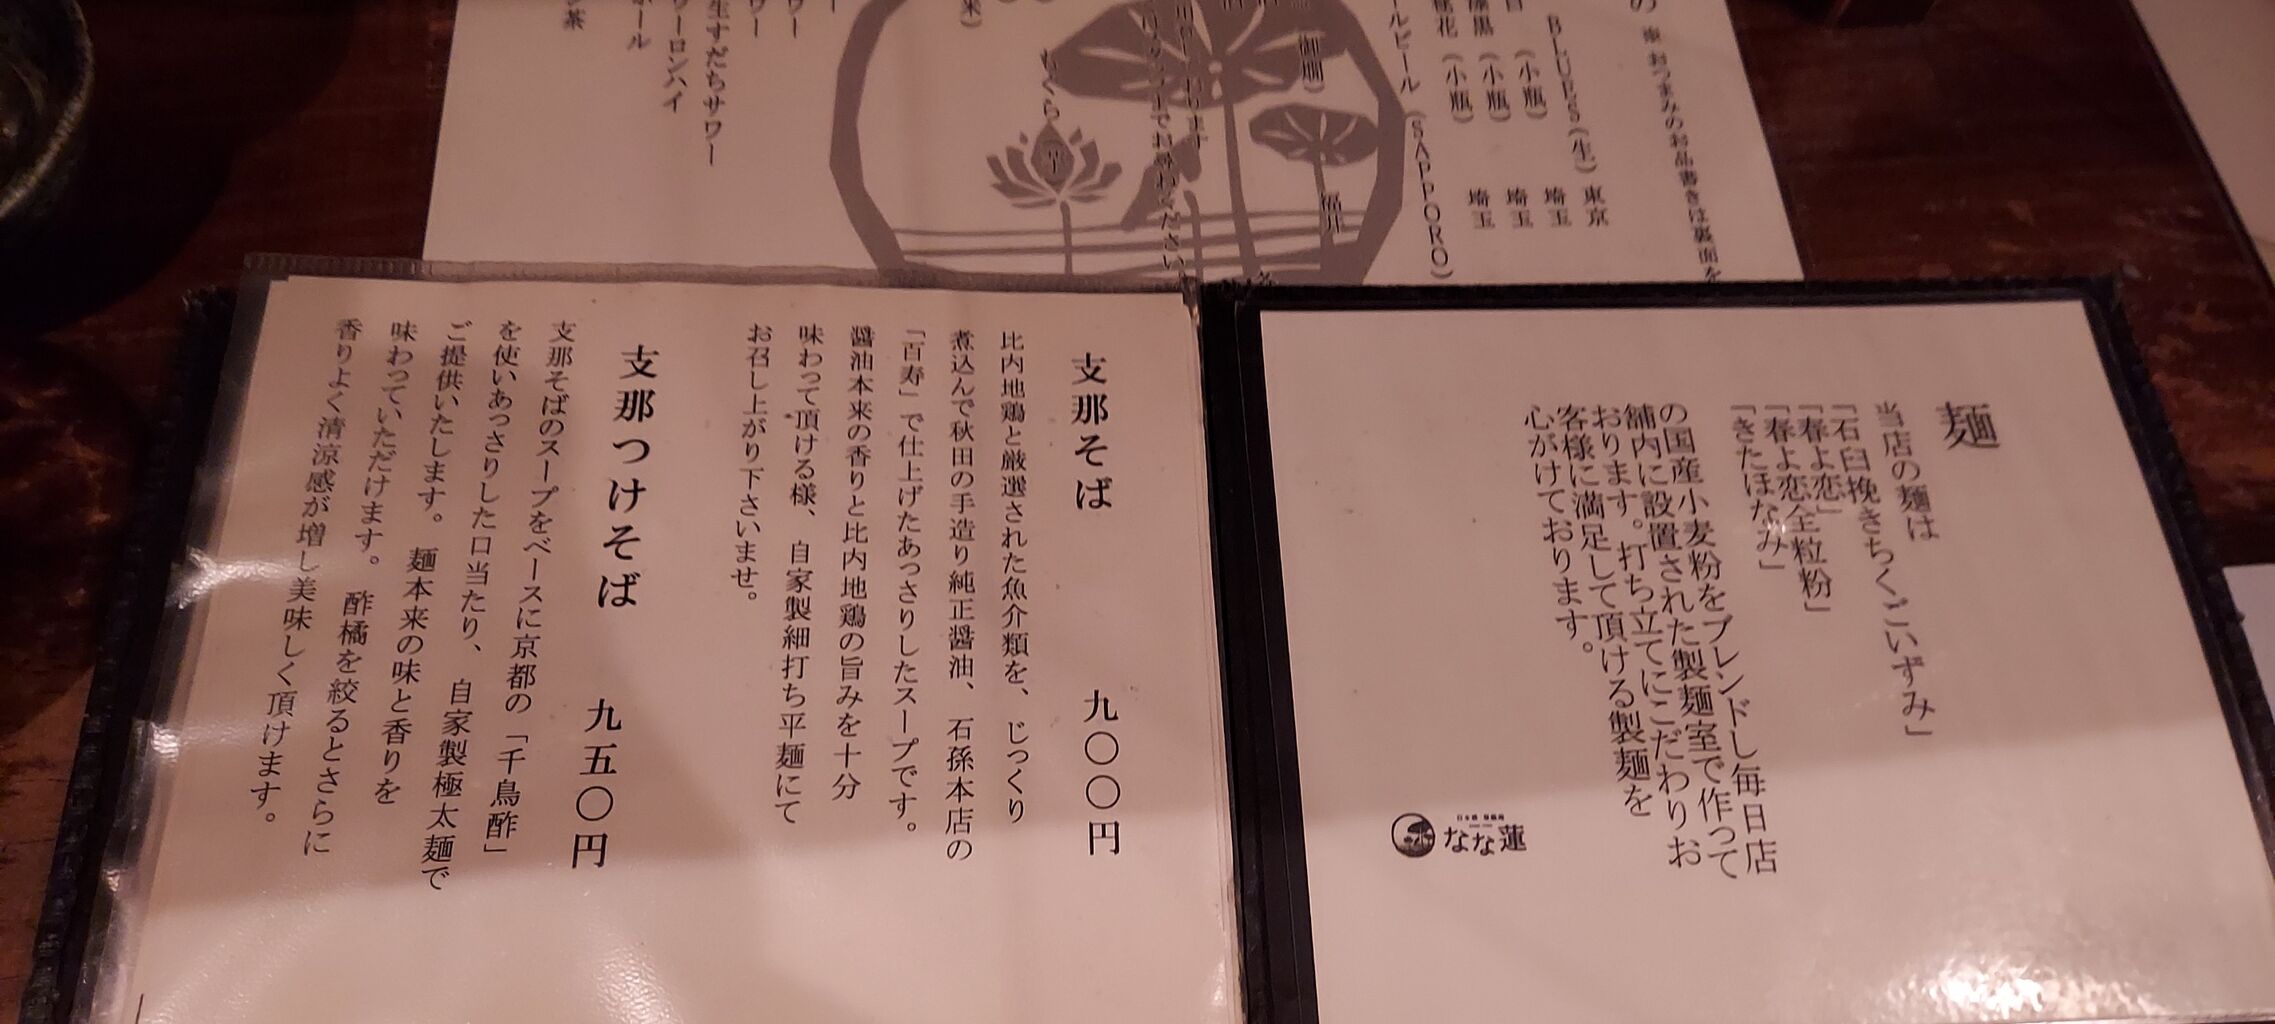 の ※おつまみのお品書きは裏面を
BLUES（生） 東京
（小瓶） 埼玉
漆黒（小瓶） 埼玉
（小瓶） 埼玉
ルビール（SAPPORO）
御燗）
福井
生すだちサワー
ウーロンハイ
茶
麺
当店の麺は
「石臼挽きちくごいずみ」
「春よ恋」
「春よ恋全粒粉」
「きたほなみ」
の国産小麦粉をブレンドし毎日店
舗内に設置された製麺室で作って
おります。打ち立てにこだわりお
客様に満足して頂ける製麺を
心がけております。
なな蓮
支那そば 九〇〇円
比内地鶏と厳選された魚介類を、じっくり
煮込んで秋田の手造り純正醤油、石孫本店の
「百寿」で仕上げたあっさりしたスープです。
醤油本来の香りと比内地鶏の旨みを十分
味わって頂ける様、自家製細打ち平麺にて
お召し上がり下さいませ。
支那つけそば 九五〇円
支那そばのスープをベースに京都の「千鳥酢」
を使いあっさりした口当たり、自家製極太麺で
ご提供いたします。麺本来の味と香りを
味わっていただけます。酢橘を絞るとさらに
香りよく清涼感が増し美味しく頂けます。